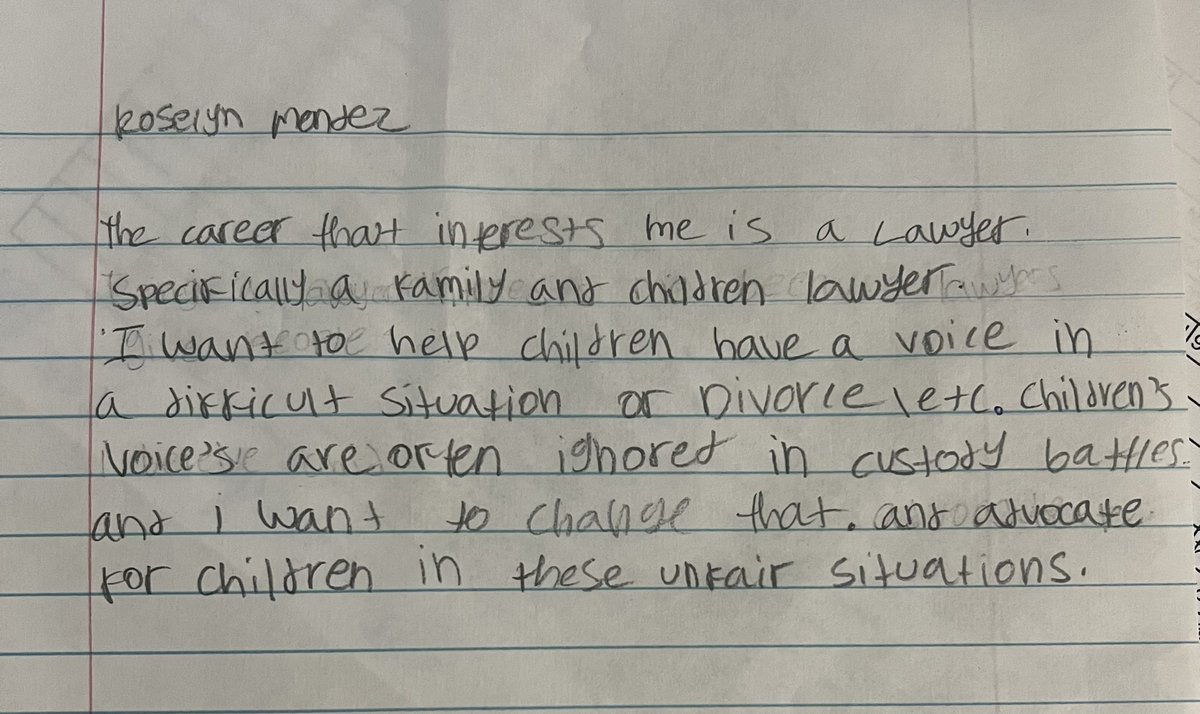 Roselyn Mendez
the career that interests me is a Lawyer.
Specifically a family and children lawyer
I want to help children have a voice in
a difficult situation or Divorce, etc. Children's
voice's are often ignored in custody battles.
and i want to change that. and advocate
for children in these unfair situations.